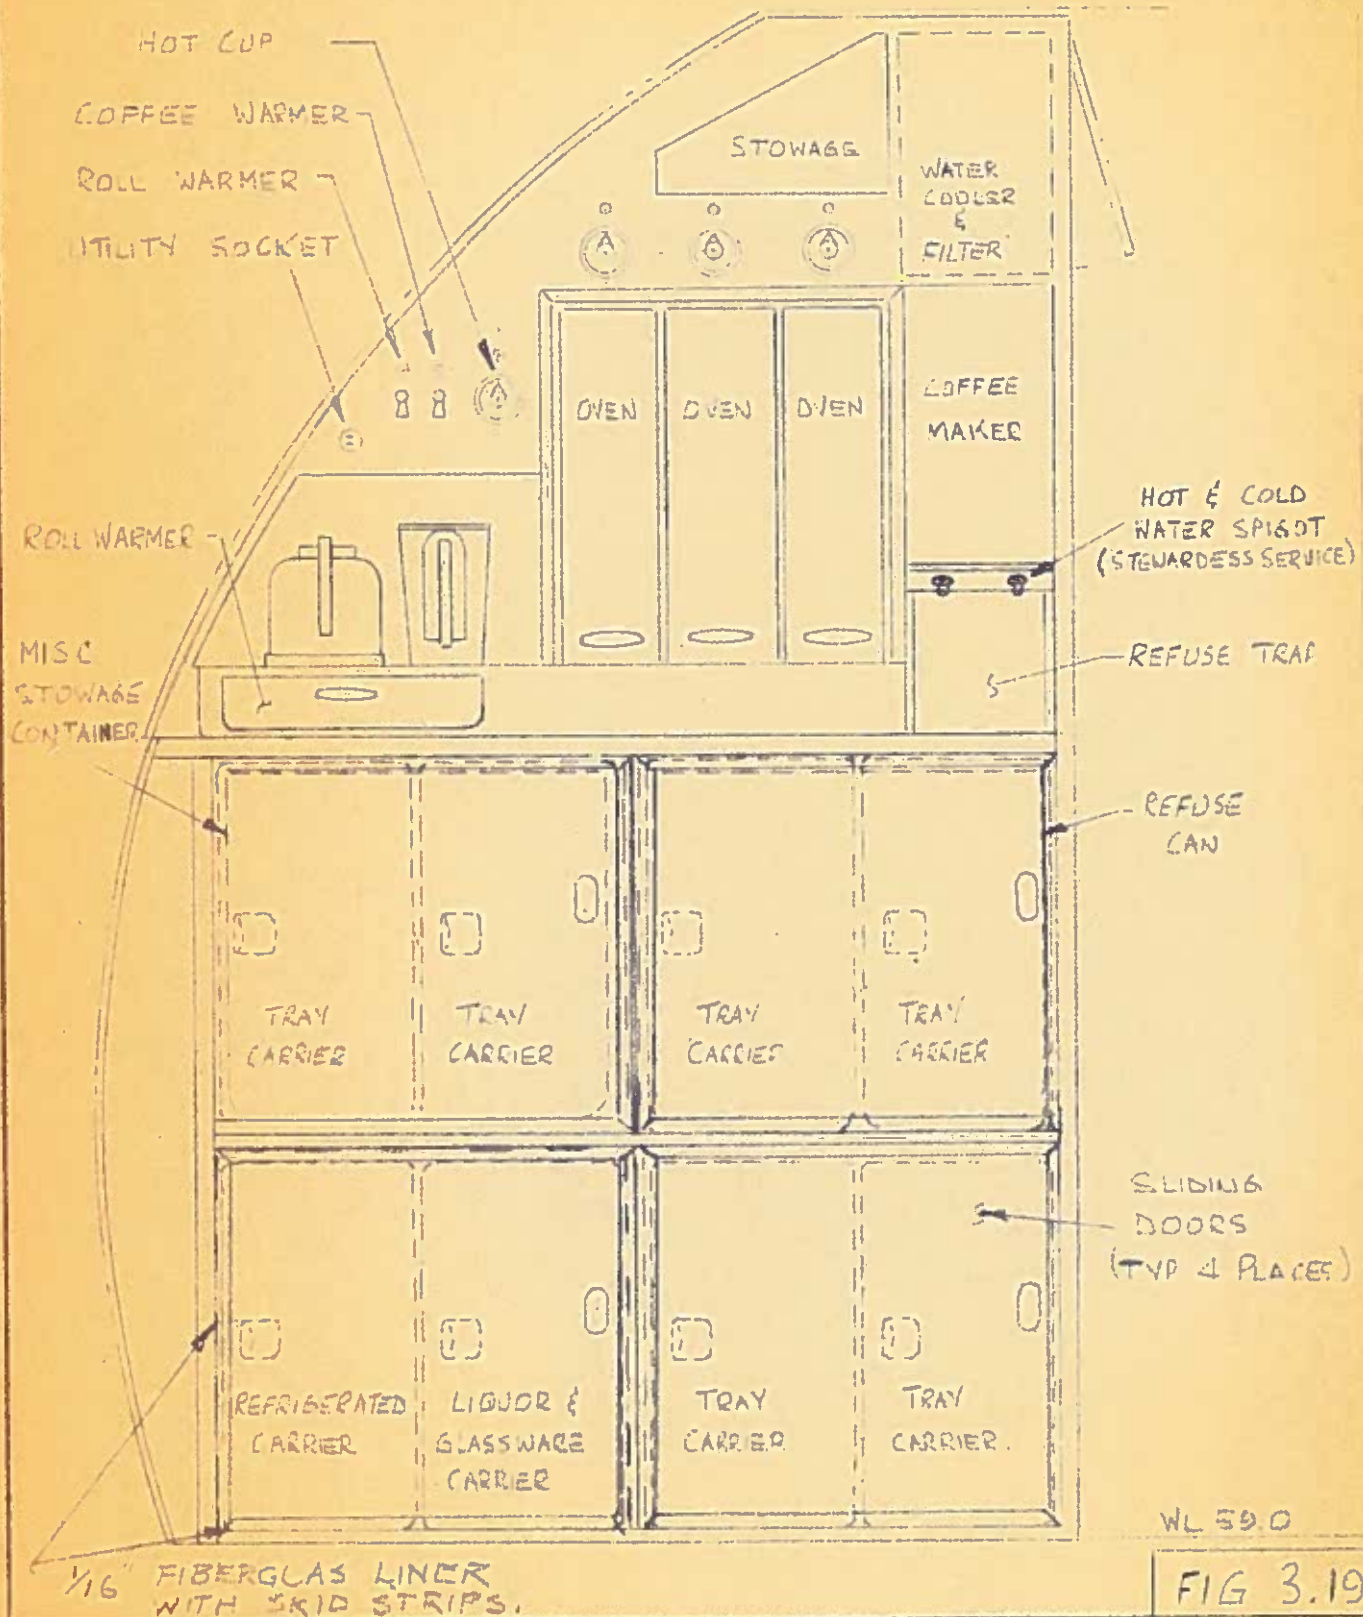 HOT CUP
COFFEE WARMER
ROLL WARMER
UTILITY SOCKET
STOWAGE
WATER
COOLER
&
FILTER
OVEN
OVEN
OVEN
COFFEE
MAKER
HOT & COLD
WATER SPIGOT
(STEWARDESS SERVICE)
ROLL WARMER
REFUSE TRAP
MISC
STOWAGE
CONTAINER
REFUSE
CAN
TRAY
CARRIER
TRAY
CARRIER
TRAY
CARRIER
TRAY
CARRIER
SLIDING
DOORS
(TYP 4 PLACES)
REFRIGERATED
CARRIER
LIQUOR &
GLASSWARE
CARRIER
TRAY
CARRIER
TRAY
CARRIER.
WL 59.0
1/16" FIBERGLAS LINER
WITH SKID STRIPS.
FIG 3.19